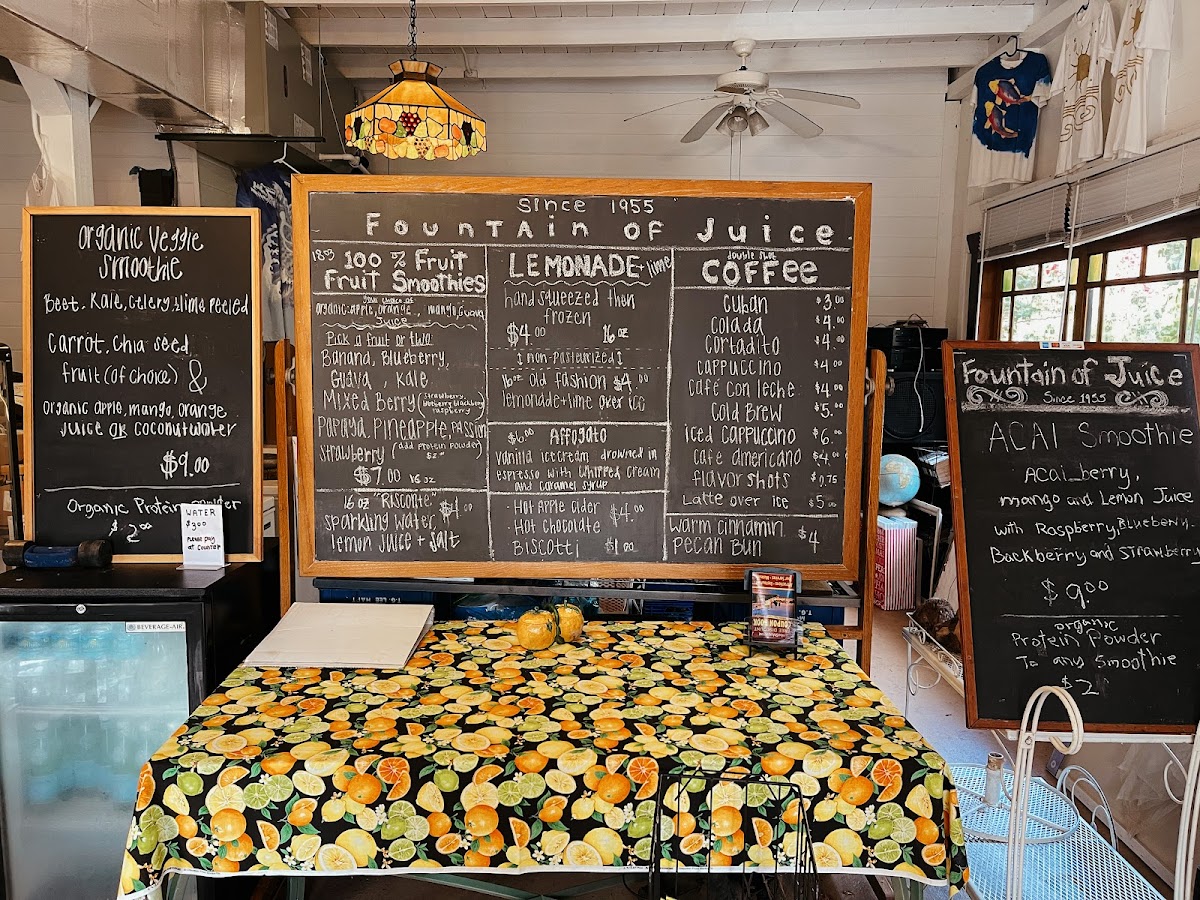 organic veggie
smoothie
Beet, Kale, Celery & lime Peeled
Carrot, Chia seed
fruit (of choice) &
Organic apple, mango, orange
Juice OR Coconutwater
$9.00
Organic Protein powder
$2.00
WATER
$3.00
Please pay
at counter
BEVERAGE-AIR
Since 1955
Fountain of Juice
100 % Fruit
Fruit Smoothies
your choice of
organic: apple, orange, mango, Guava
Juice
Pick a fruit or two:
Banana, Blueberry,
Guava, Kale
Mixed Berry (strawberry,
blueberry, blackberry
raspberry
Papaya, Pineapple, Passion
Strawberry (add Protein powder)
$2.00
$7.00 16 oz
16 oz "Risconte" $4.00
Sparkling water,
lemon Juice + Salt
LEMONADE + lime
hand squeezed then
frozen
$4.00 16 oz
[non-pasteurized]
16oz Old fashion $4.00
lemonade + lime over ice
$6.00 Affogato
vanilla icecream drowned in
espresso with whipped cream
and caramel syrup
- Hot Apple cider $4.00
- Hot chocolate
Biscotti $1.00
double shot
COFFEE
Cuban $3.00
Colada $4.00
Cortadito $4.00
Cappuccino $4.00
café con leche $4.00
Cold Brew $5.00
iced cappuccino $6.00
cafe americano $4.00
flavor shots $0.75
Latte over ice $5.00
warm cinnamin $4
Pecan Bun
COUPON BOOK
Fountain of Juice
Since 1955
ACAI Smoothie
Acai berry,
mango and Lemon Juice
with Raspberry, Blueberry,
Backberry and Strawberry
$9.00
organic
Protein Powder
To any Smoothie
$2